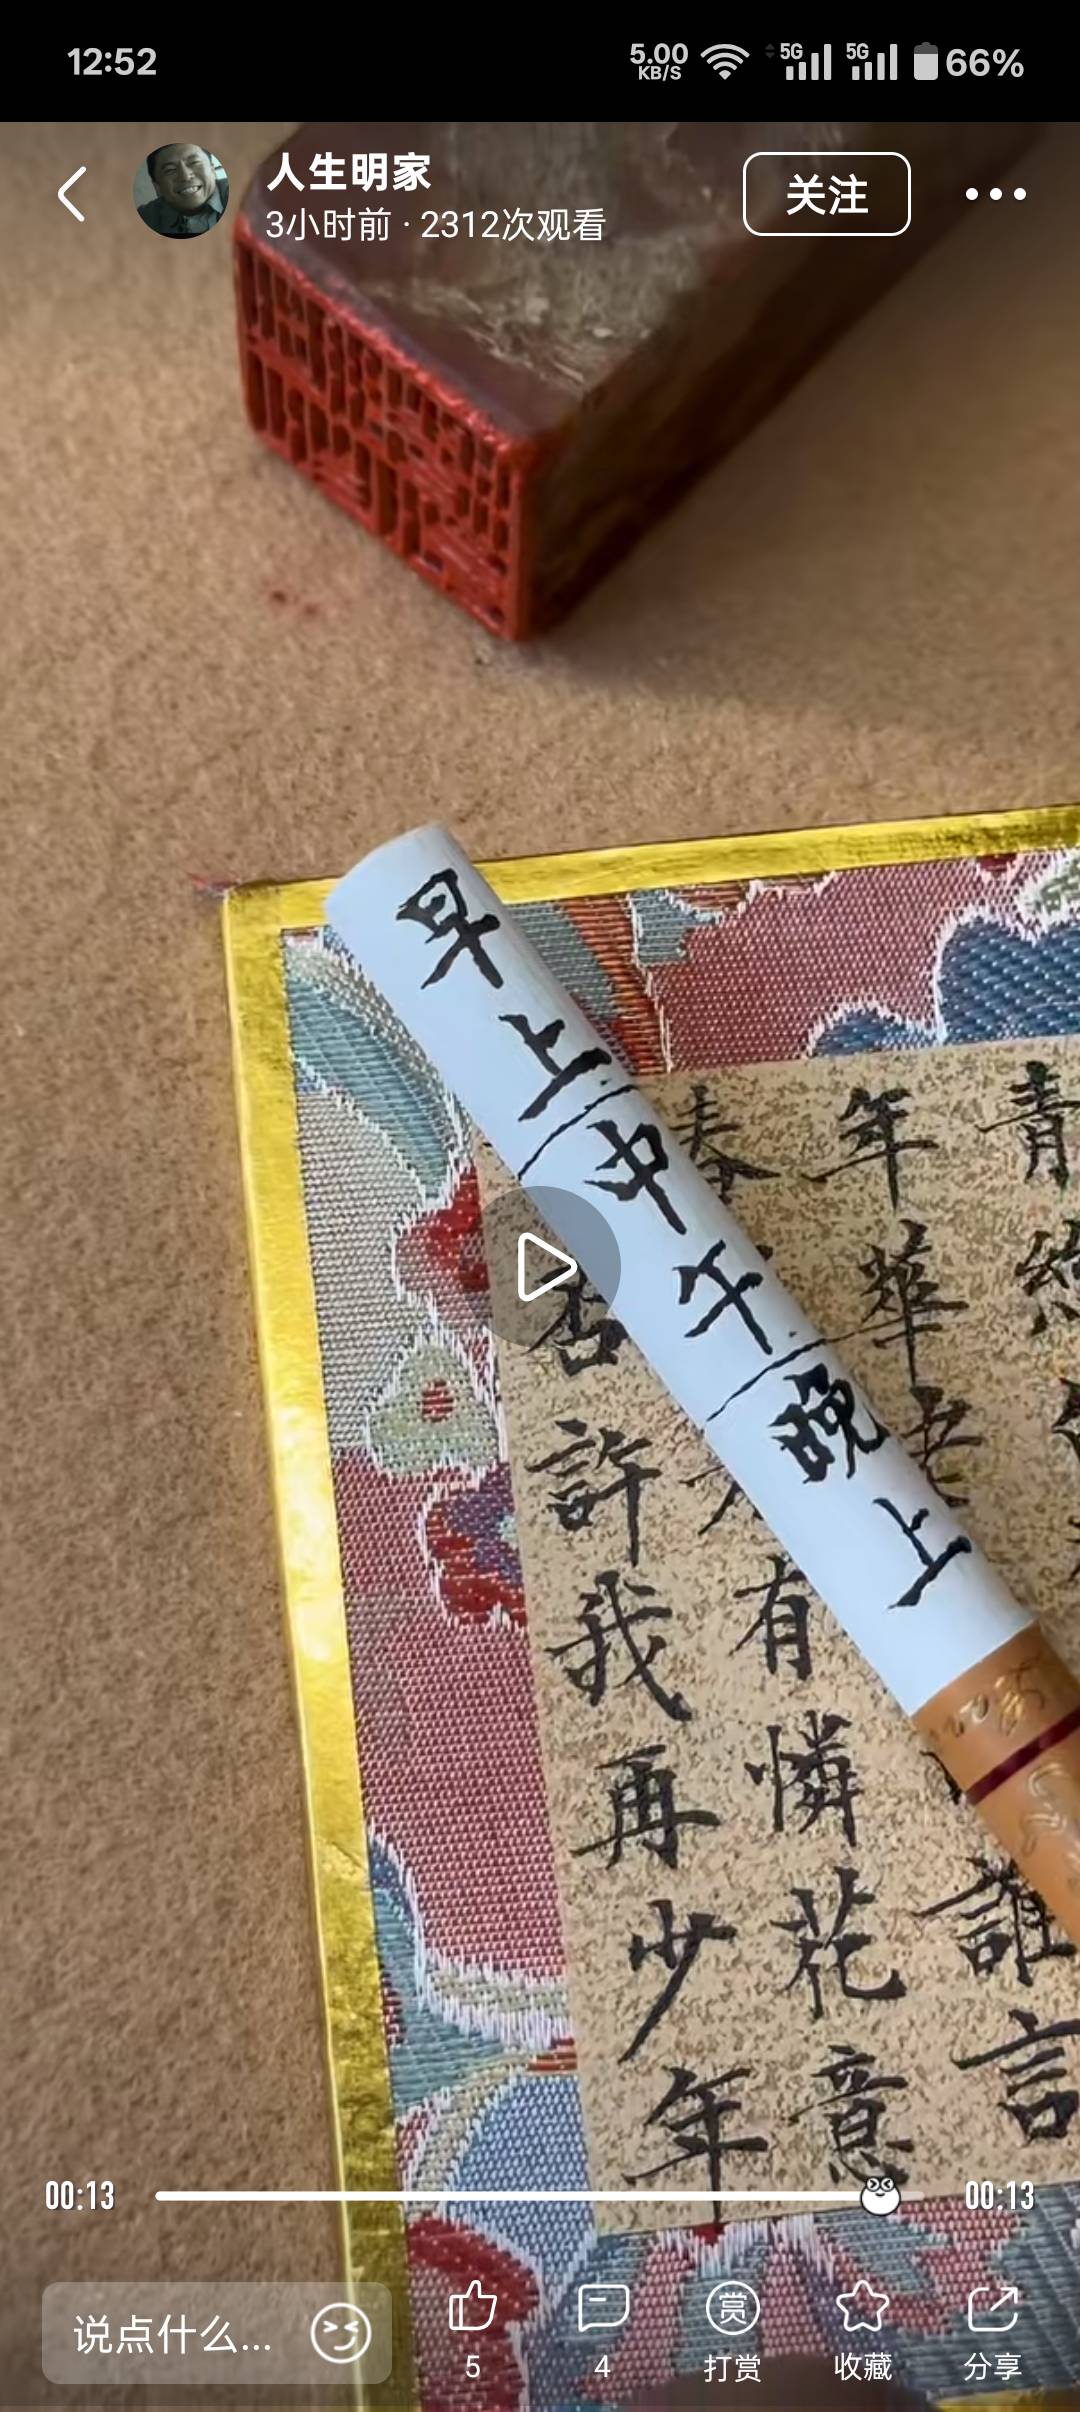 12:52
5.00 KB/S
5G
5G
66%
人生明家
3小时前 · 2312次观看
关注
早上
中午
晚上
青
年華老
誰言
春
有憐花意
否許我再少年
00:13
00:13
说点什么...
5
4
赏
打赏
收藏
分享